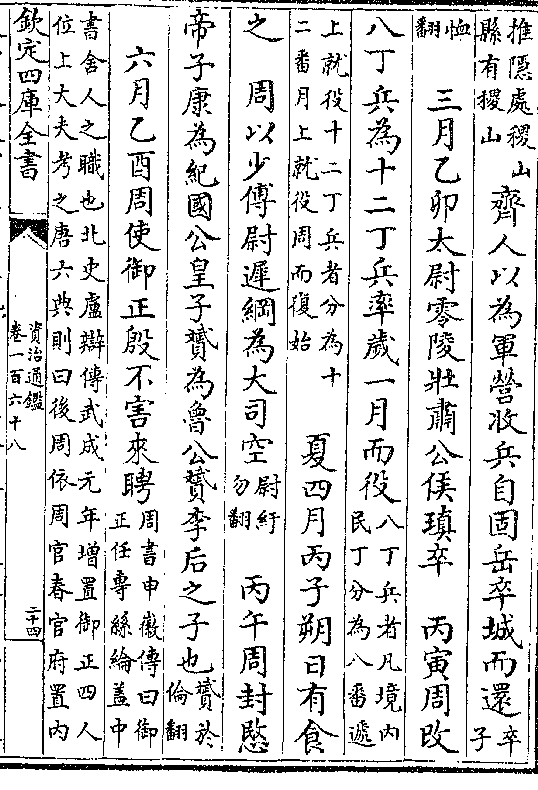 推隠處稷山縣有稷山齊人以為軍營收兵自固岳卒城而還卒子
恤翻　三月乙卯太尉零陵壯肅公侯瑱卒　丙寅周改
八丁兵為十二丁兵率歲一月而役八丁兵者凡境内民丁分為八番遞
上就役十二丁兵者分為十二番月上就役周而復始　夏四月丙子朔日有食
之　周以少傅尉遲綱為大司空尉紆勿翻　丙午周封愍
帝子康為紀國公皇子贇為魯公贇李后之子也贇於倫翻
六月乙酉周使御正殷不害來聘周書申徽傳曰御正任專絲綸盖中
書舍人之職也北史盧辯傳武成元年増置御正四人位上大夫考之唐六典則曰後周依周官春官府置内
欽定四庫全書
資治通鑑
卷一百六十八
二十四